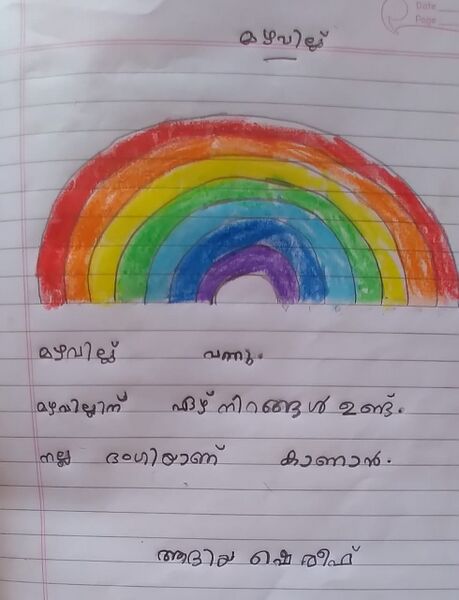 മഴവില്ല്
Date
Page
മഴവില്ല് വന്നു.
മഴവില്ലിന് ഏഴ് നിറങ്ങൾ ഉണ്ട്.
നല്ല ഭംഗിയാണ് കാണാൻ.
ആദിയ ഷെരീഫ്